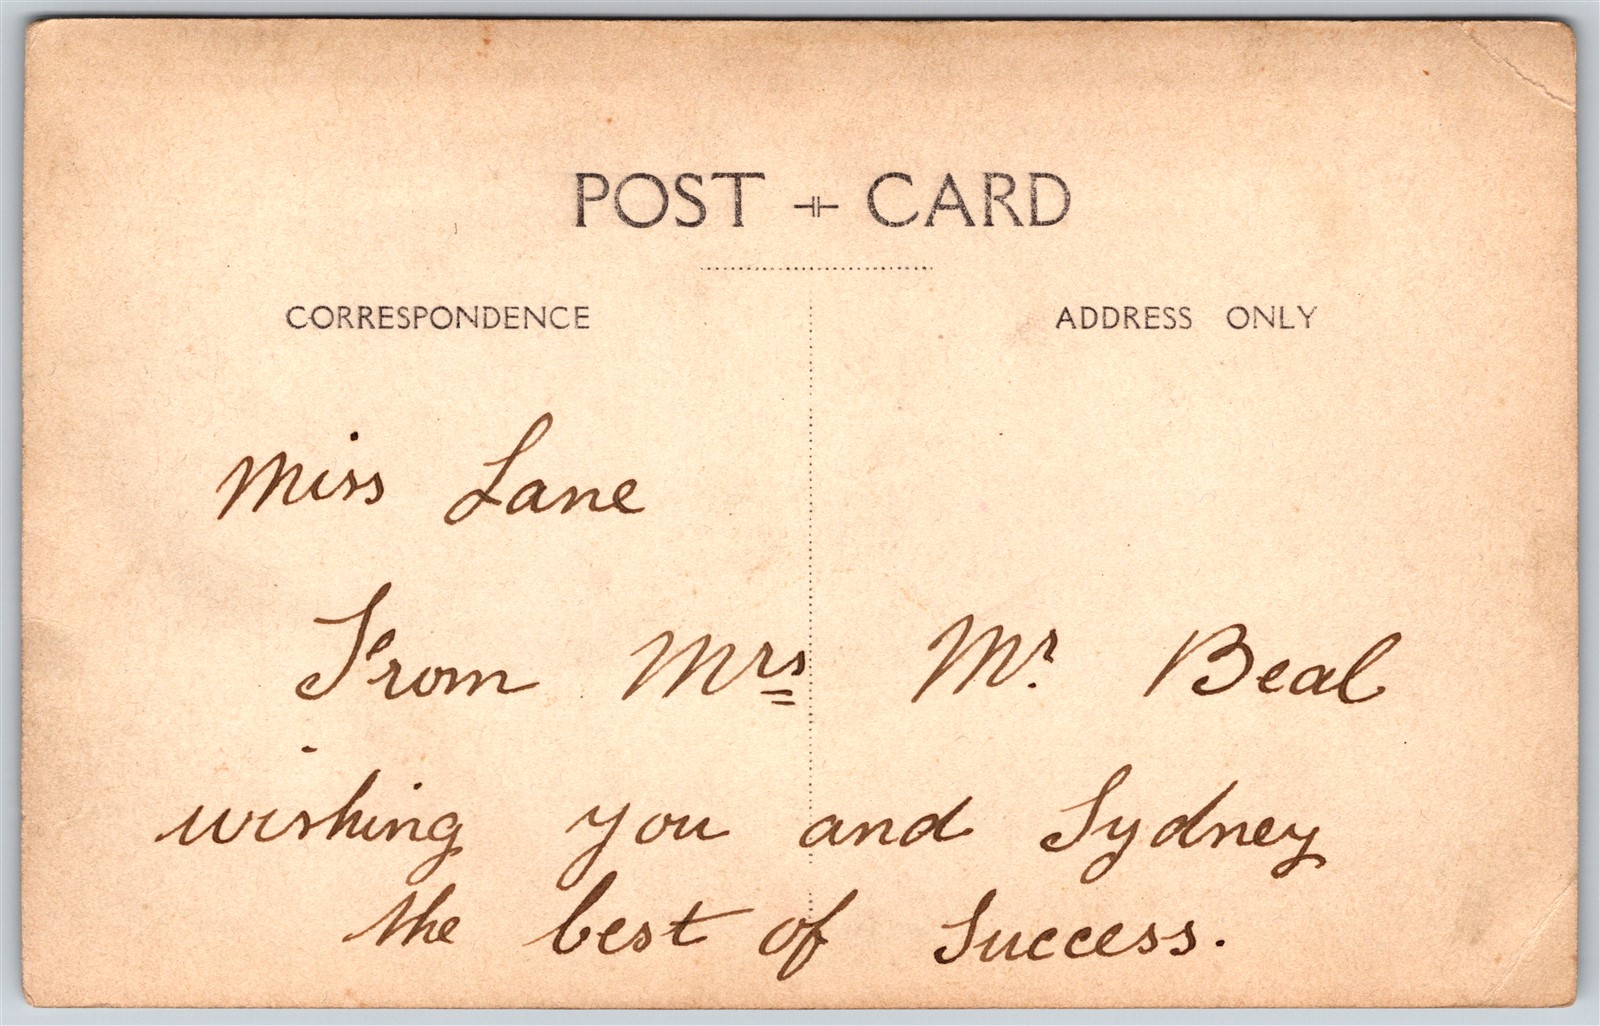 POST CARD
CORRESPONDENCE
ADDRESS ONLY
Miss Lane
From Mrs Mr. Beal
wishing you and Sydney
the best of Success.